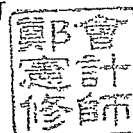 會計師
鄭憲修